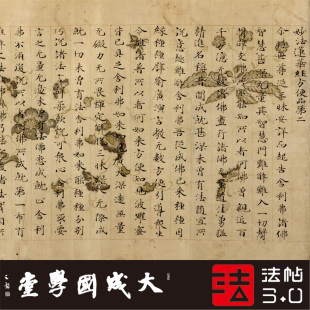 妙法蓮華經方便品第二
尒時世尊從三昧安詳而起告舍利弗諸佛
智慧甚深無量其智慧門難解難入一切聲
聞辟支佛所不能知所以者何佛曾親近百
千萬億無數諸佛盡行諸佛無量道法勇猛
精進名稱普聞成就甚深未曾有法隨宜所
說意趣難解舍利弗吾從成佛已來種種因
緣種種譬喻廣演言教無數方便引導衆生
令離諸著所以者何如來方便知見波羅蜜
皆已具足舍利弗如來知見廣大深遠無量
無礙力無所畏禪定解脫三昧深入無際成
就一切未曾有法舍利弗如來能種種分別
巧說諸法言辭柔軟悅可衆心舍利弗取要
言之無量無邊未曾有法佛悉成就止舍利
弗不須復說所以者何佛所成就第一希有
大成國學堂
法
法帖
3.0